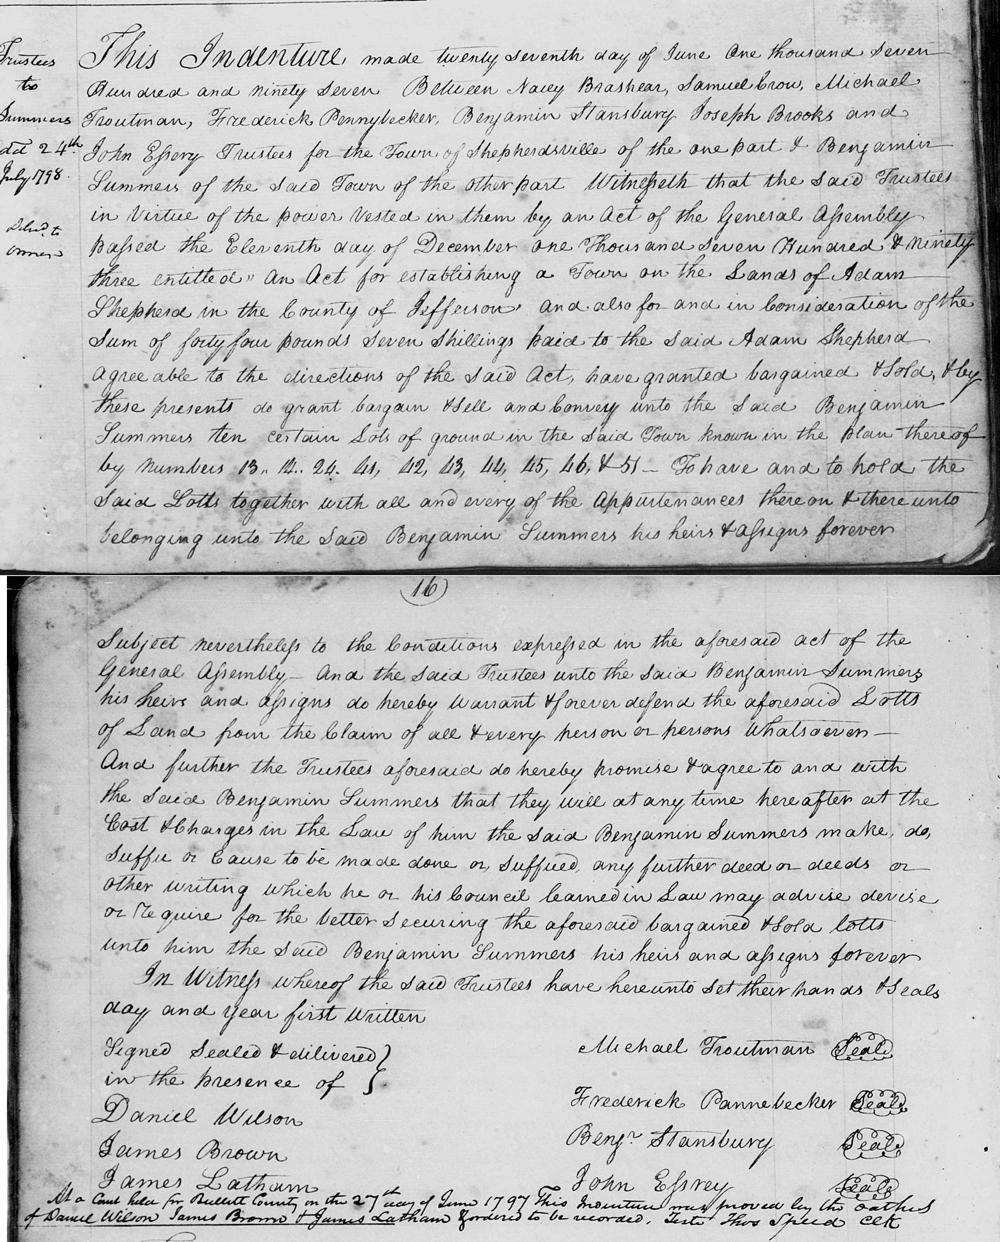 Trustees
to
Summers
dd 24th
July 1798
Deld. to
owner
This Indenture made twenty seventh day of June One thousand Seven
Hundred and ninety seven Between Nacey Brashear, Samuel Crow, Michael
Troutman, Frederick Pennybecker, Benjamin Stansbury Joseph Brooks and
John Essery Trustees for the Town of Shepherdsville of the one part & Benjamin
Summers of the said Town of the other part Witnesseth that the said Trustees
in Virtue of the power Vested in them by an Act of the General Assembly
passed the Eleventh day of December one Thousand Seven Hundred & Ninety
three entitled " An Act for establishing a Town on the Lands of Adam
Shepherd in the County of Jefferson" and also for and in Consideration of the
Sum of forty four pounds Seven Shillings paid to the said Adam Shepherd
agreeable to the directions of the said Act, have granted bargained & Sold, & by
these presents do grant bargain & Sell and Convey unto the said Benjamin
Summers ten certain Lots of ground in the said Town known in the plan thereof
by numbers 13, 14. 24. 41, 42, 43, 44, 45, 46, & 51 — To have and to hold the
said Lotts together with all and every of the appurtenances thereon & thereunto
belonging unto the said Benjamin Summers his heirs & assigns forever
16
Subject nevertheless to the Conditions expressed in the aforesaid act of the
General Assembly — And the said Trustees unto the said Benjamin Summers
his heirs and assigns do hereby Warrant & forever defend the aforesaid Lotts
of Land from the Claim of all & every person or persons Whatsoever —
And further the Trustees aforesaid do hereby promise & agree to and with
the said Benjamin Summers that they will at any time hereafter at the
Cost & Charges in the Law of him the said Benjamin Summers make, do,
suffer or Cause to be made done or suffered, any further deed or deeds or
other writing which he or his Council learned in Law may advise devise
or Require for the better Securing the aforesaid bargained & Sold lotts
unto him the said Benjamin Summers his heirs and assigns forever
In Witness whereof the said Trustees have hereunto set their hands & Seals
day and year first Written
Signed Sealed & delivered
in the presence of
Michael Troutman Seal
Daniel Wilson
Frederick Pannebecker Seal
James Brown
Benjn. Stansbury Seal
James Latham
John Essrey Seal
At a Court held for Bullitt County on the 27th day of June 1797 This Indenture was proved by the oathes
of Daniel Wilson James Brown & James Latham & ordered to be recorded. Teste Thos Speed Clk